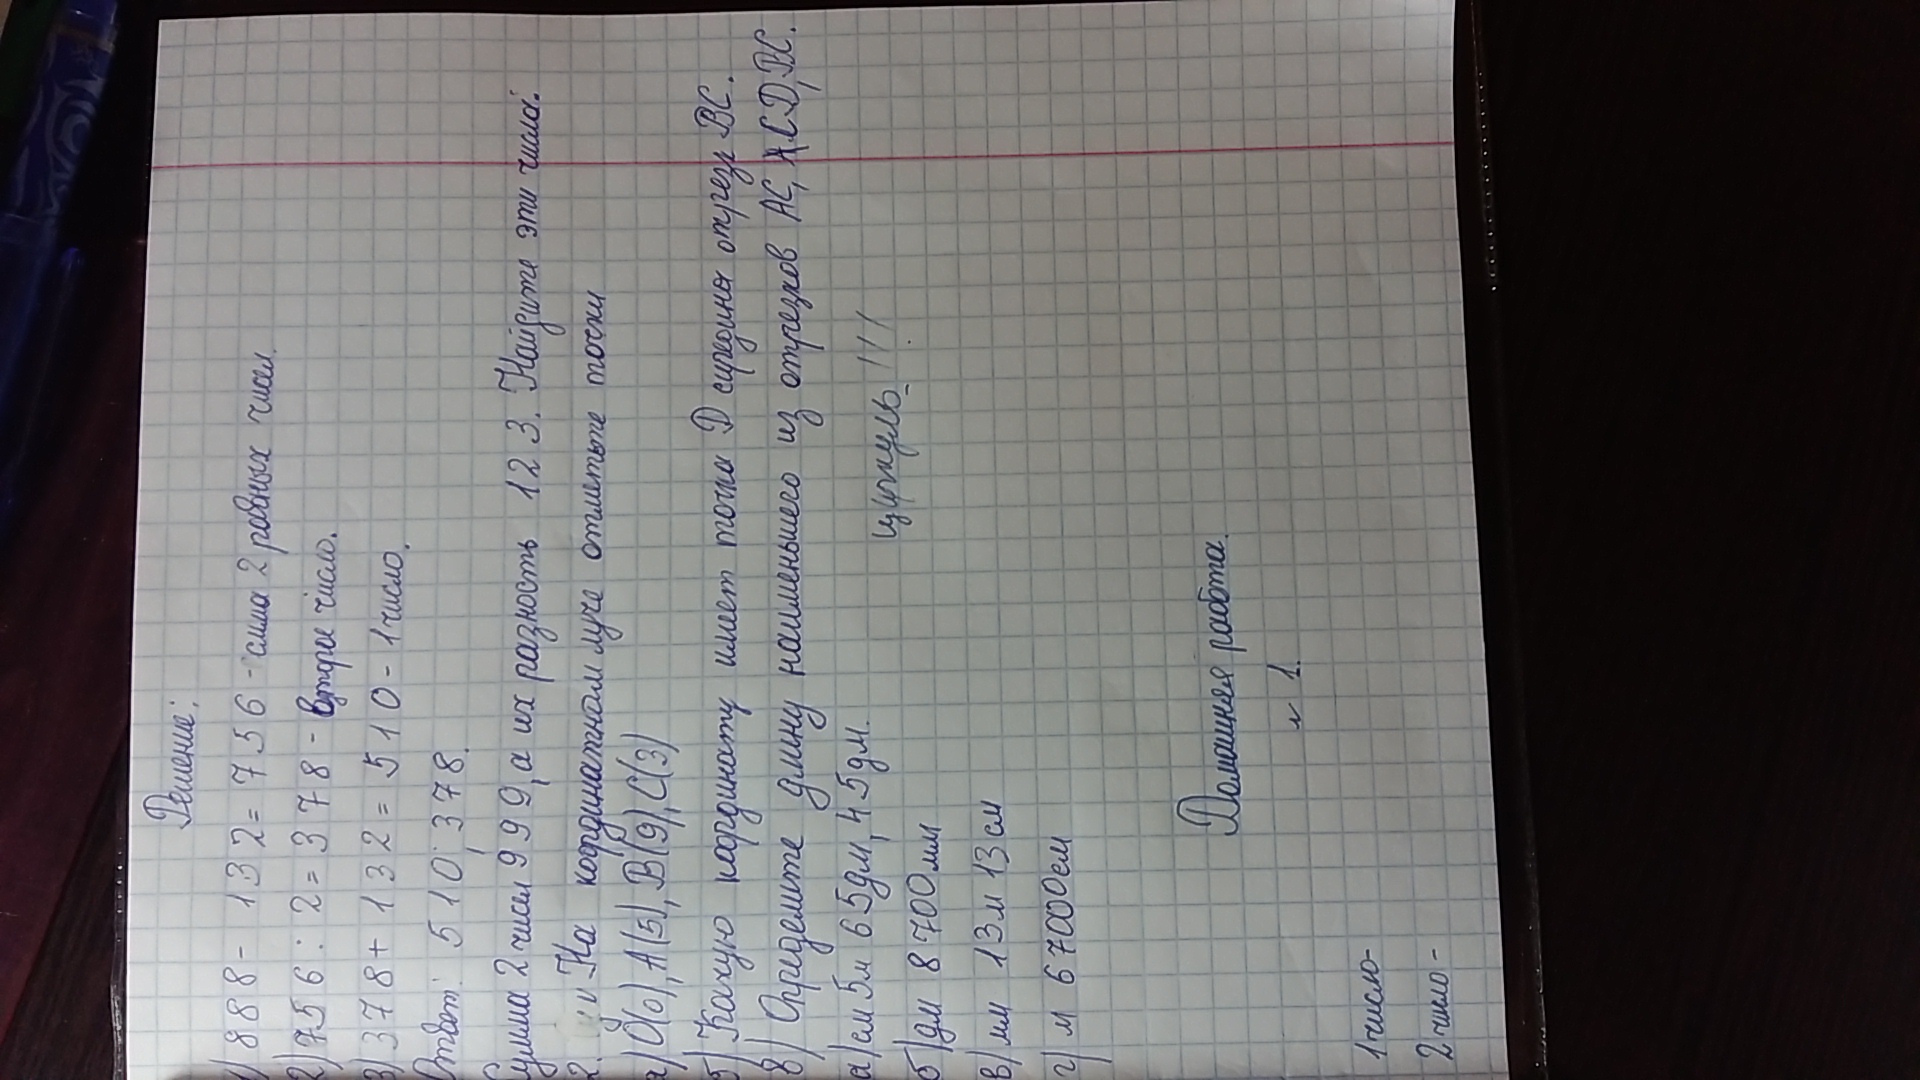 Решение:
1) 888 - 132 = 756 - сумма 2 равных чисел.
2) 756 : 2 = 378 - второе число.
3) 378 + 132 = 510 - 1 число.
Ответ: 510; 378.
Сумма 2 чисел 999, а их разность 123. Найдите эти числа.
2. На координатном луче отметьте точки
а) О(0), А(5), В(9), С(3)
б) Какую координату имеет точка D середина отрезк BC.
в) Определите длину наименьшего из отрезков AC, CD, BC.
а) см 5м 65дм, 45дм.
циркуль!!!
б) дм 8700мм
в) мм 13м 13см
г) м 67000см
Домашняя работа.
№ 1.
1 число-
2 число-